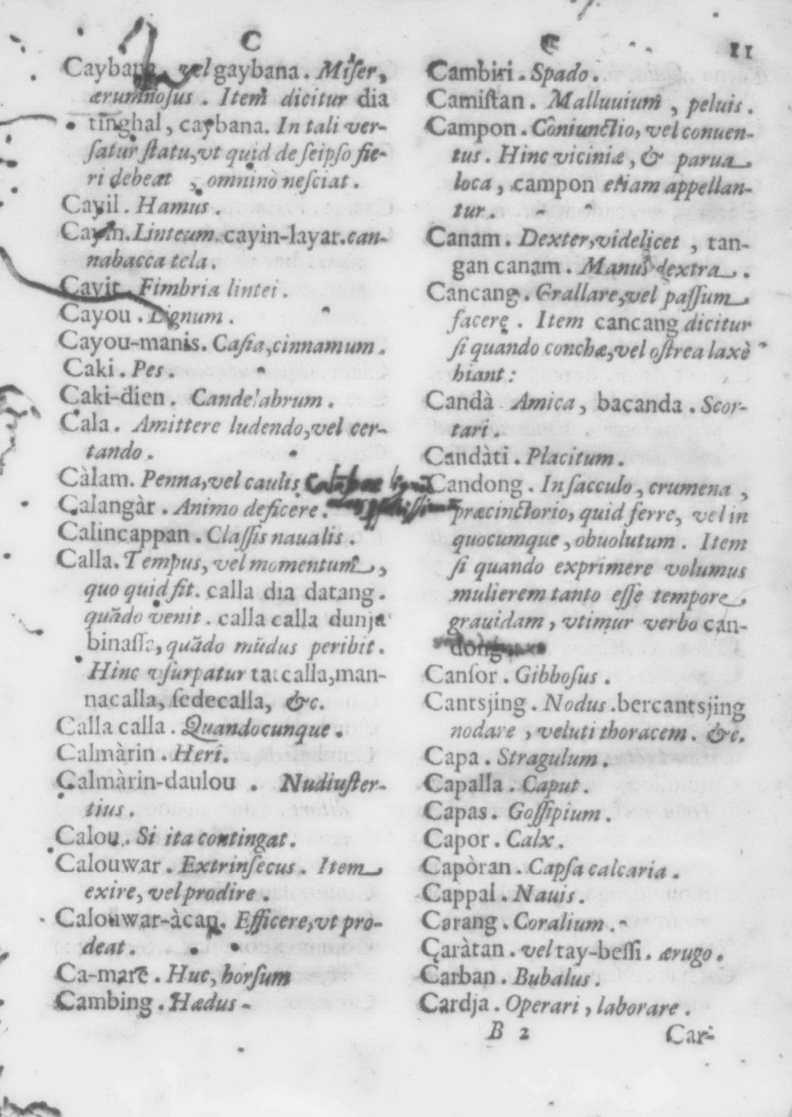 C
Caybana, vel gaybana. Miſer,
ærumnoſus. Item dicitur dia
tinghal, caybana. In tali ver-
ſatur ſtatu, vt quid de ſeipſo fie-
ri debeat, omninò neſciat.
Cayil. Hamus.
Cayin. Linteum. cayin-layar. can-
nabacca tela.
Cayit. Fimbria lintei.
Cayou. Lignum.
Cayou-manis. Caſia, cinnamum.
Caki. Pes.
Caki-dien. Candelabrum.
Cala. Amittere ludendo, vel cer-
tando.
Càlam. Penna, vel caulis
Calangàr. Animo deficere.
Calincappan. Claſſis naualis.
Calla. Tempus, vel momentum,
quo quid fit. calla dia datang.
quãdo venit. calla calla dunja
binaſſa, quãdo mũdus peribit.
Hinc vſurpatur tatcalla, man-
nacalla, ſedecalla, &c.
Calla calla. Quandocunque.
Calmàrin. Heri.
Calmàrin-daulou. Nudiuſter-
tius.
Calou. Si ita contingat.
Calouwar. Extrinſecus. Item
exire, vel prodire.
Calouwar-àcan. Efficere, vt pro-
deat.
Ca-mare. Huc, horſum
Cambing. Hædus.
C
11
Cambiri. Spado.
Camiſtan. Malluuium, peluis.
Campon. Coniunctio, vel conuen-
tus. Hinc viciniæ, & parua
loca, campon etiam appellan-
tur.
Canam. Dexter, videlicet, tan-
gan canam. Manus dextra.
Cancang. Grallare, vel paſſum
facere. Item cancang dicitur
ſi quando conchæ, vel oſtrea laxè
hiant:
Candà Amica, bacanda. Scor-
tari.
Candàti. Placitum.
Candong. In ſacculo, crumena,
præcinctorio, quid ferre, vel in
quocumque, obuolutum. Item
ſi quando exprimere volumus
mulierem tanto eſſe tempore
grauidam, vtimur verbo can-
dòng
Canſor. Gibboſus.
Cantsjing. Nodus. bercantsjing
nodare, veluti thoracem. &c.
Capa. Stragulum.
Capalla. Caput.
Capas. Goſſipium.
Capor. Calx.
Capòran. Capſa calcaria.
Cappal. Nauis.
Carang. Coralium.
Caràtan. vel tay-beſſi. ærugo.
Carban. Bubalus.
Cardja. Operari, laborare.
B 2
Car-